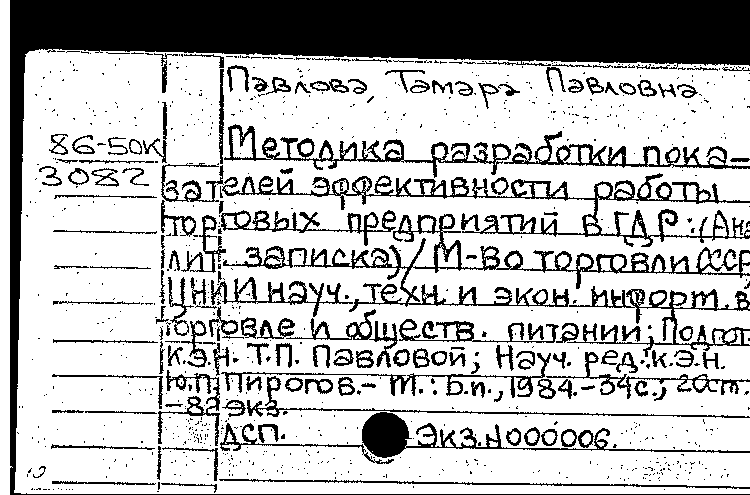 Павлова, Тамара Павловна
86-50К
3082
Методика разработки пока-
зателей эффективности работы
торговых предприятий в ГДР: (Ана
лит. записка) / М-во торговли СССР
ЦНИИ науч., техн. и экон. информ. в
торговле и обществ. питании; Подгот.
к.э.н. Т.П. Павловой; Науч. ред. к.э.н.
Ю.П. Пирогов.- М.: Б.и., 1984.-34с.; 20см.
-82 экз.
ДСП. Экз.N000006.